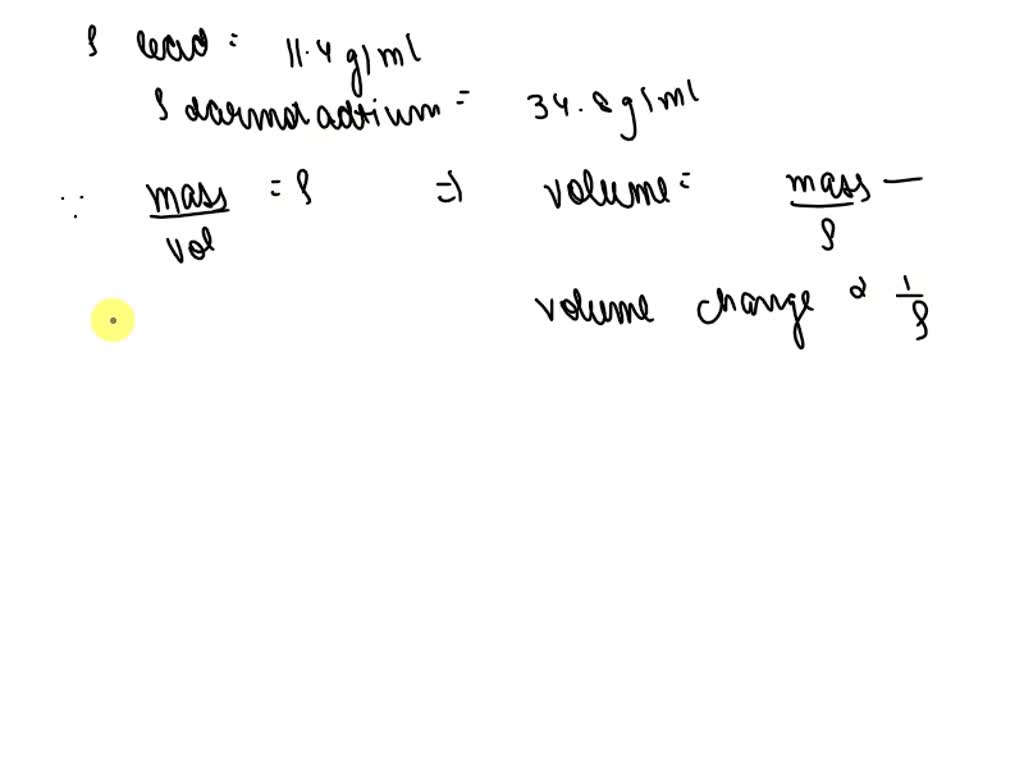 ρ lead = 11.4 g/ml
ρ darmdtadtium = 34.8 g/ml
∵ mass/vol = ρ ⇒ volume = mass/ρ —
volume change α 1/ρ